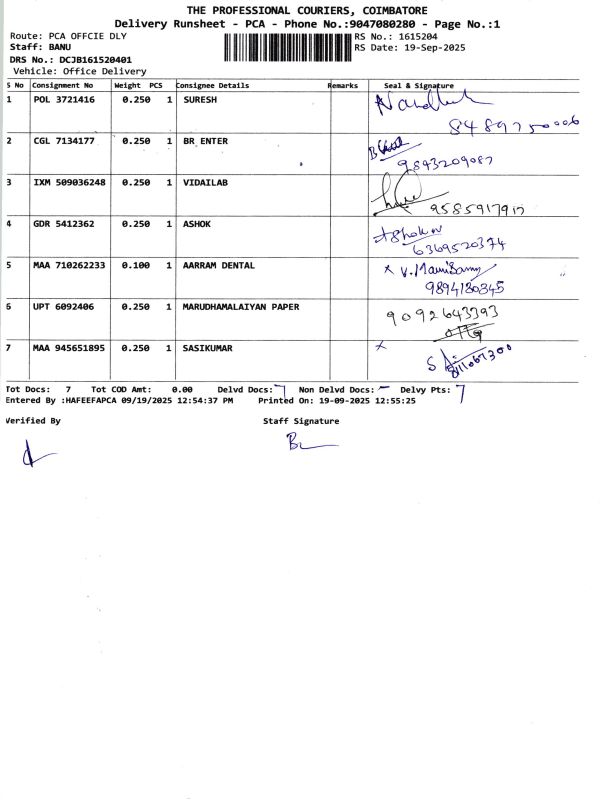 THE PROFESSIONAL COURIERS, COIMBATORE
Delivery Runsheet - PCA - Phone No.:9047080280 - Page No.:1
Route: PCA OFFCIE DLY RS No.: 1615204
Staff: BANU RS Date: 19-Sep-2025
DRS No.: DCJB161520401
Vehicle: Office Delivery
S No Consignment No Weight PCS Consignee Details Remarks Seal & Signature
1 POL 3721416 0.250 1 SURESH
8489750006
2 CGL 7134177 0.250 1 BR ENTER
9843209087
3 IXM 509036248 0.250 1 VIDAILAB
9585917917
4 GDR 5412362 0.250 1 ASHOK Ashokn
6369520374
5 MAA 710262233 0.100 1 AARRAM DENTAL
9894130345
6 UPT 6092406 0.250 1 MARUDHAMALAIYAN PAPER 9092643393
7 MAA 945651895 0.250 1 SASIKUMAR x
Tot Docs: 7 Tot COD Amt: 0.00 Delvd Docs: 7 Non Delvd Docs: - Delvy Pts: 7
Entered By :HAFEEFAPCA 09/19/2025 12:54:37 PM Printed On: 19-09-2025 12:55:25
Verified By Staff Signature